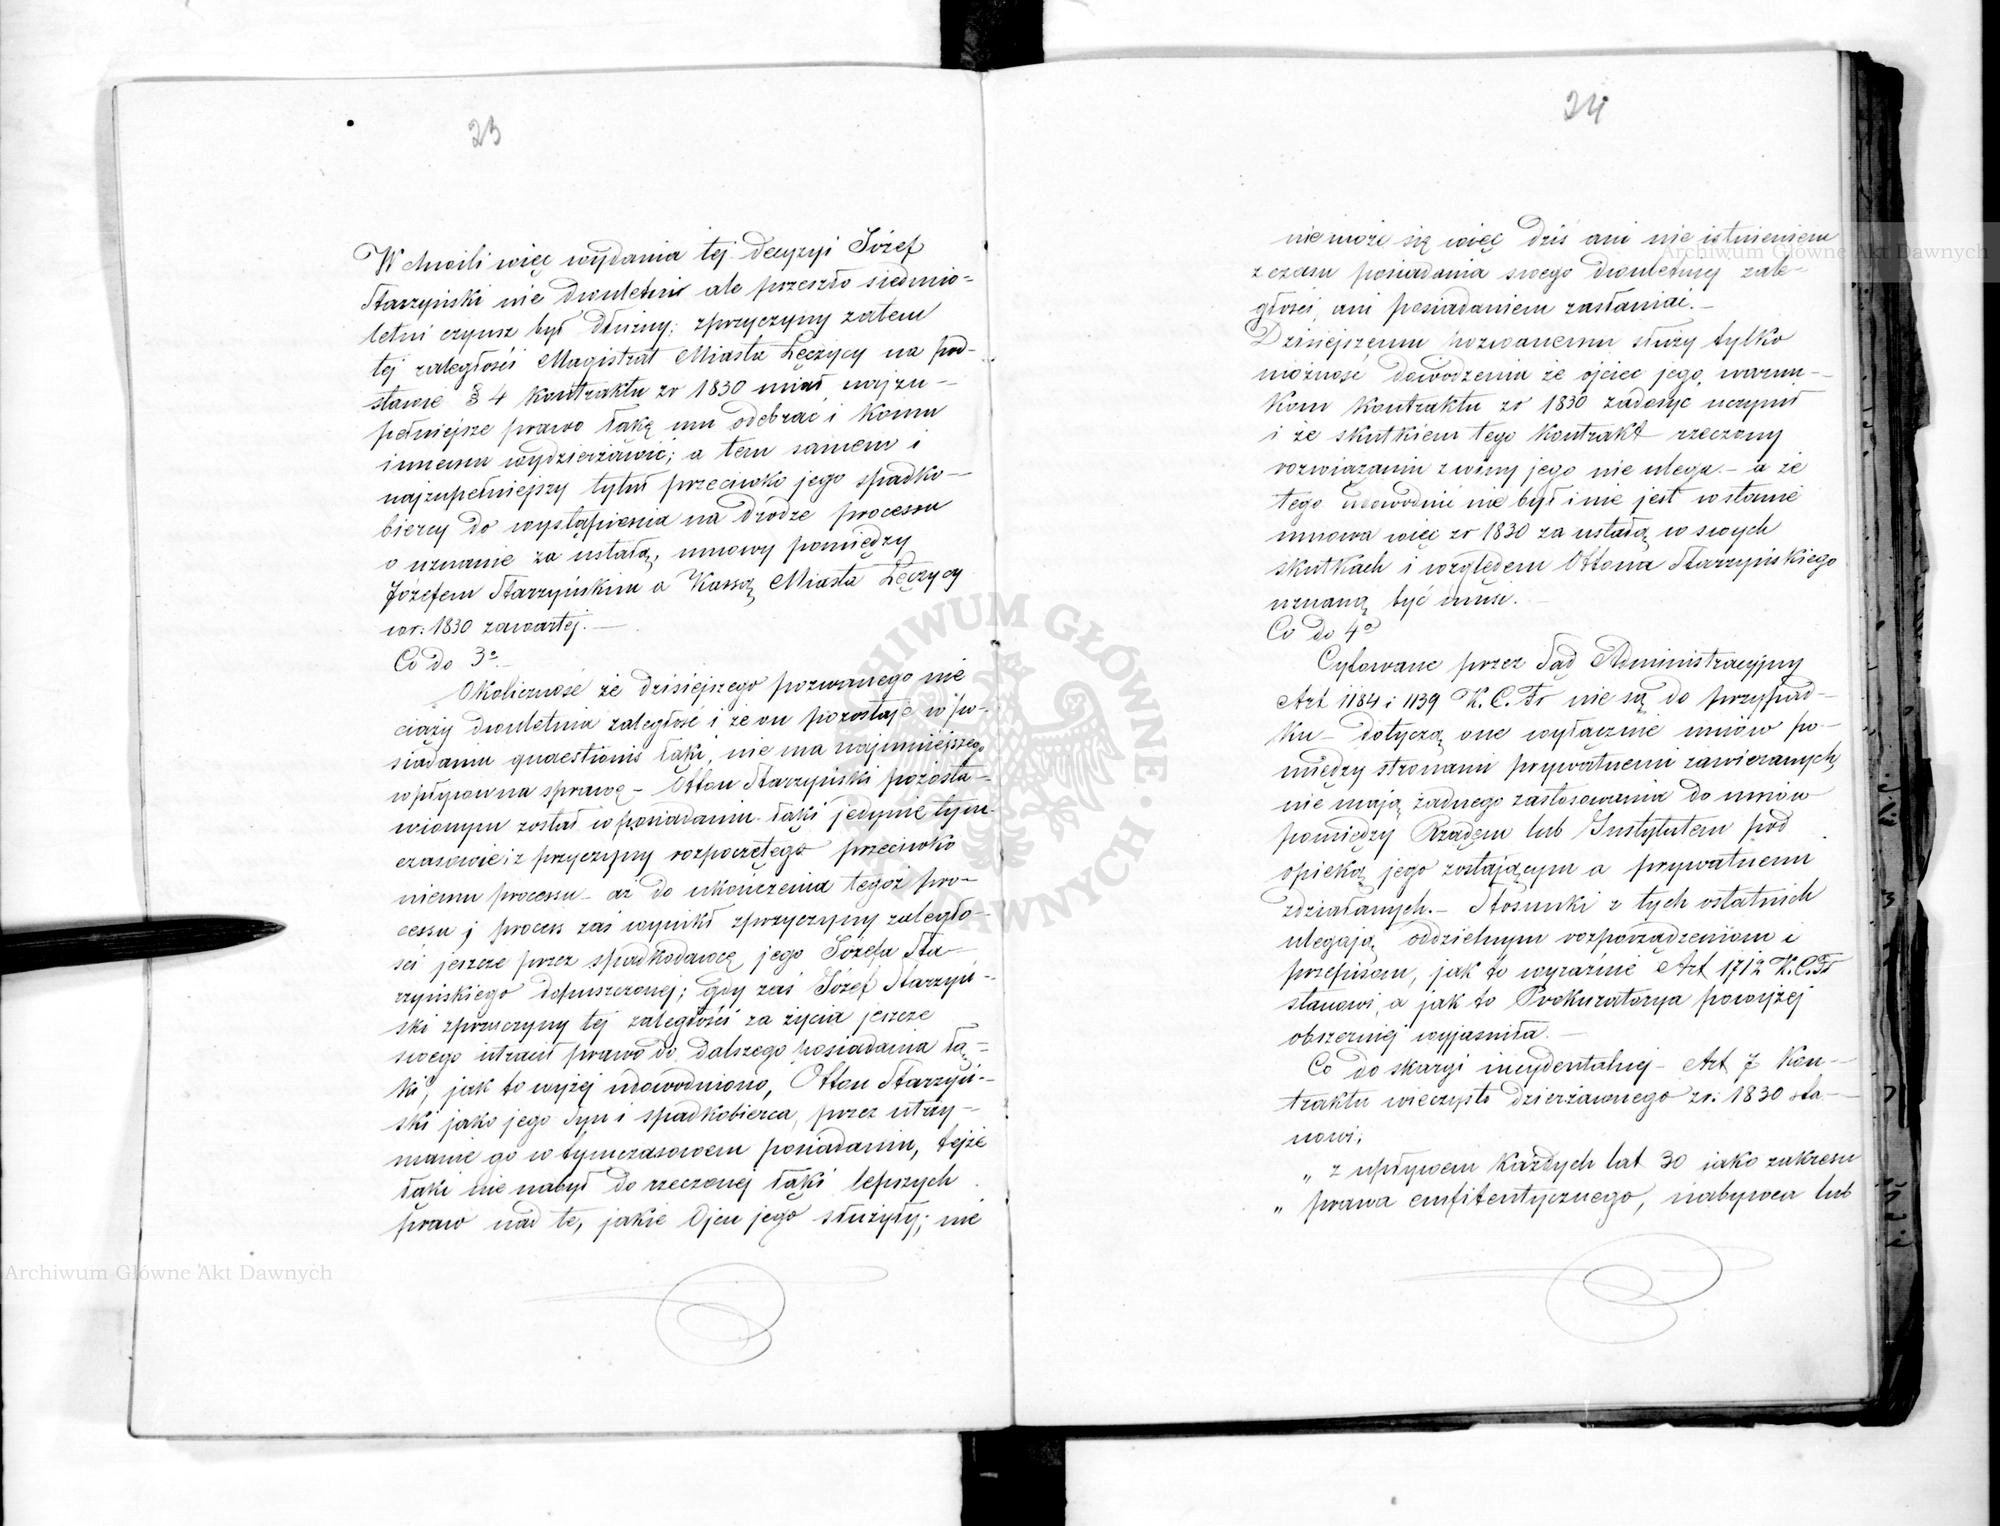 23
W chwili więc wydania tej decyzyi Józef
Starzyński nie dwuletni ale przeszło siedmio-
letni czynsz był dłużny; z przyczyny zatem
tej zaległości Magistrat Miasta Łęczycy na pod-
stawie § 4 Kontraktu zr 1830 miał najzu-
pełniejsze prawo łąkę mu odebrać i komu
innemu wydzierżawić; a tem samem i
najzupełniejszy tytuł przeciwko jego spadko-
biercy do wystąpienia na drodze processu
o uznanie za ustałą, umowy pomiędzy
Józefem Starzyńskim a Kassą Miasta Łęczycy
wr: 1830 zawartej.—
Co do 3º.—
Okoliczność że dzisiejszego pozwanego nie
ciąży dwuletnia zaległość i że on pozostaje w po-
siadaniu quaestionis łąki, nie ma najmniejszego
wpływu na sprawę – Otton Starzyński pozosta-
wionym został w posiadaniu łąki jedynie tym-
czasowie i z przyczyny rozpoczętego przeciwko
niemu processu – aż do ukończenia tegoż pro-
cessu; process zaś wynikł z przyczyny zaległo-
ści jeszcze przez spadkodawcę jego Józefa Sta-
rzyńskiego dopuszczonej; gdy zaś Józef Starzyń-
ski z przyczyny tej zaległości za życia jeszcze
swego utracił prawo do dalszego posiadania łą-
ki, jak to wyżej udowodniono, Otton Starzyń-
ski jako jego syn i spadkobierca, przez utrzy-
manie go w tymczasowem posiadaniu, tejże
łąki nie nabył do rzeczonej łąki lepszych
praw nad te, jakie Ojcu jego służyły; nie
24
nie może się więc dziś ani nie istnieniem
z czasu posiadania swego dwuletniej zale-
głości, ani posiadaniem zasłaniać.—
Dzisiejszemu pozwanemu służy tylko
możność dowodzenia że ojciec jego, warun-
kom Kontraktu zr 1830 zadosyć uczynił
i że skutkiem tego Kontrakt rzeczony
rozwiązaniu z winy jego nie ulega – a że
tego udowodnić nie był i nie jest w stanie
umowa więc zr 1830 za ustałą w swych
skutkach i względem Ottona Starzyńskiego
uznaną być musi.—
Co do 4º
Cytowane przez Sąd Administracyjny
Art 1184 i 1139 K. C. Fr nie są do przypad-
ku – dotyczą one wyłącznie umów po-
między stronami prywatnemi zawieranych,
nie mają żadnego zastosowania do umów
pomiędzy Rządem lub Instytutem pod
opieką jego zostającym a prywatnemi
zdziałanych.— Stosunki z tych ostatnich
ulegają oddzielnym rozporządzeniom i
przepisom, jak to wyraźnie Art 1712 K.C.Fr
stanowi, a jak to Prokuratorya powyżej
obszerniej wyjaśniła.—
Co do skargi incydentalnej – Art 7 Kon-
traktu wieczysto dzierżawnego zr: 1830 sta-
nowi;
„ z upływem każdych lat 30 jako zakresu
„ prawa emfiteutycznego, nabywca lub
Archiwum Główne Akt Dawnych
Archiwum Główne Akt Dawnych
ARCHIWUM GŁÓWNE AKT DAWNYCH